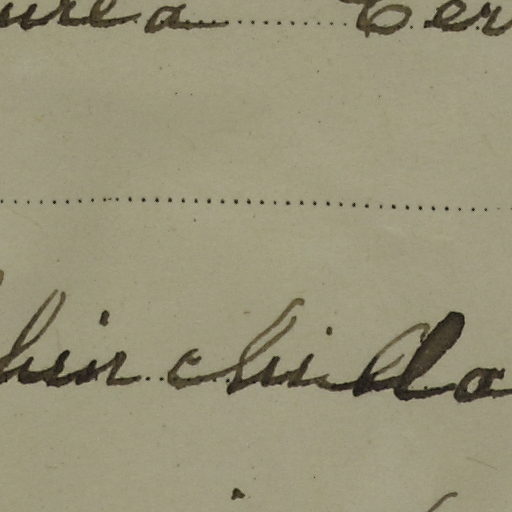 urea Cer
hinchilla